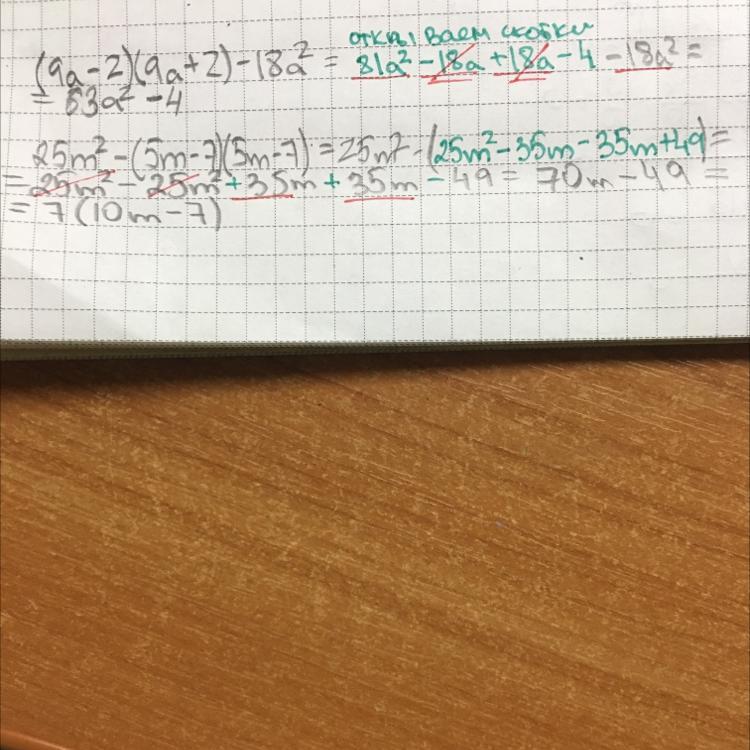 открываем скобки
(9a-2)(9a+2)-18a² = 81a²-18a+18a-4-18a² =
= 63a²-4
25m²-(5m-7)(5m-7)=25m²-(25m²-35m-35m+49)=
= 25m²-25m²+35m+35m-49= 70m-49 =
= 7(10m-7)